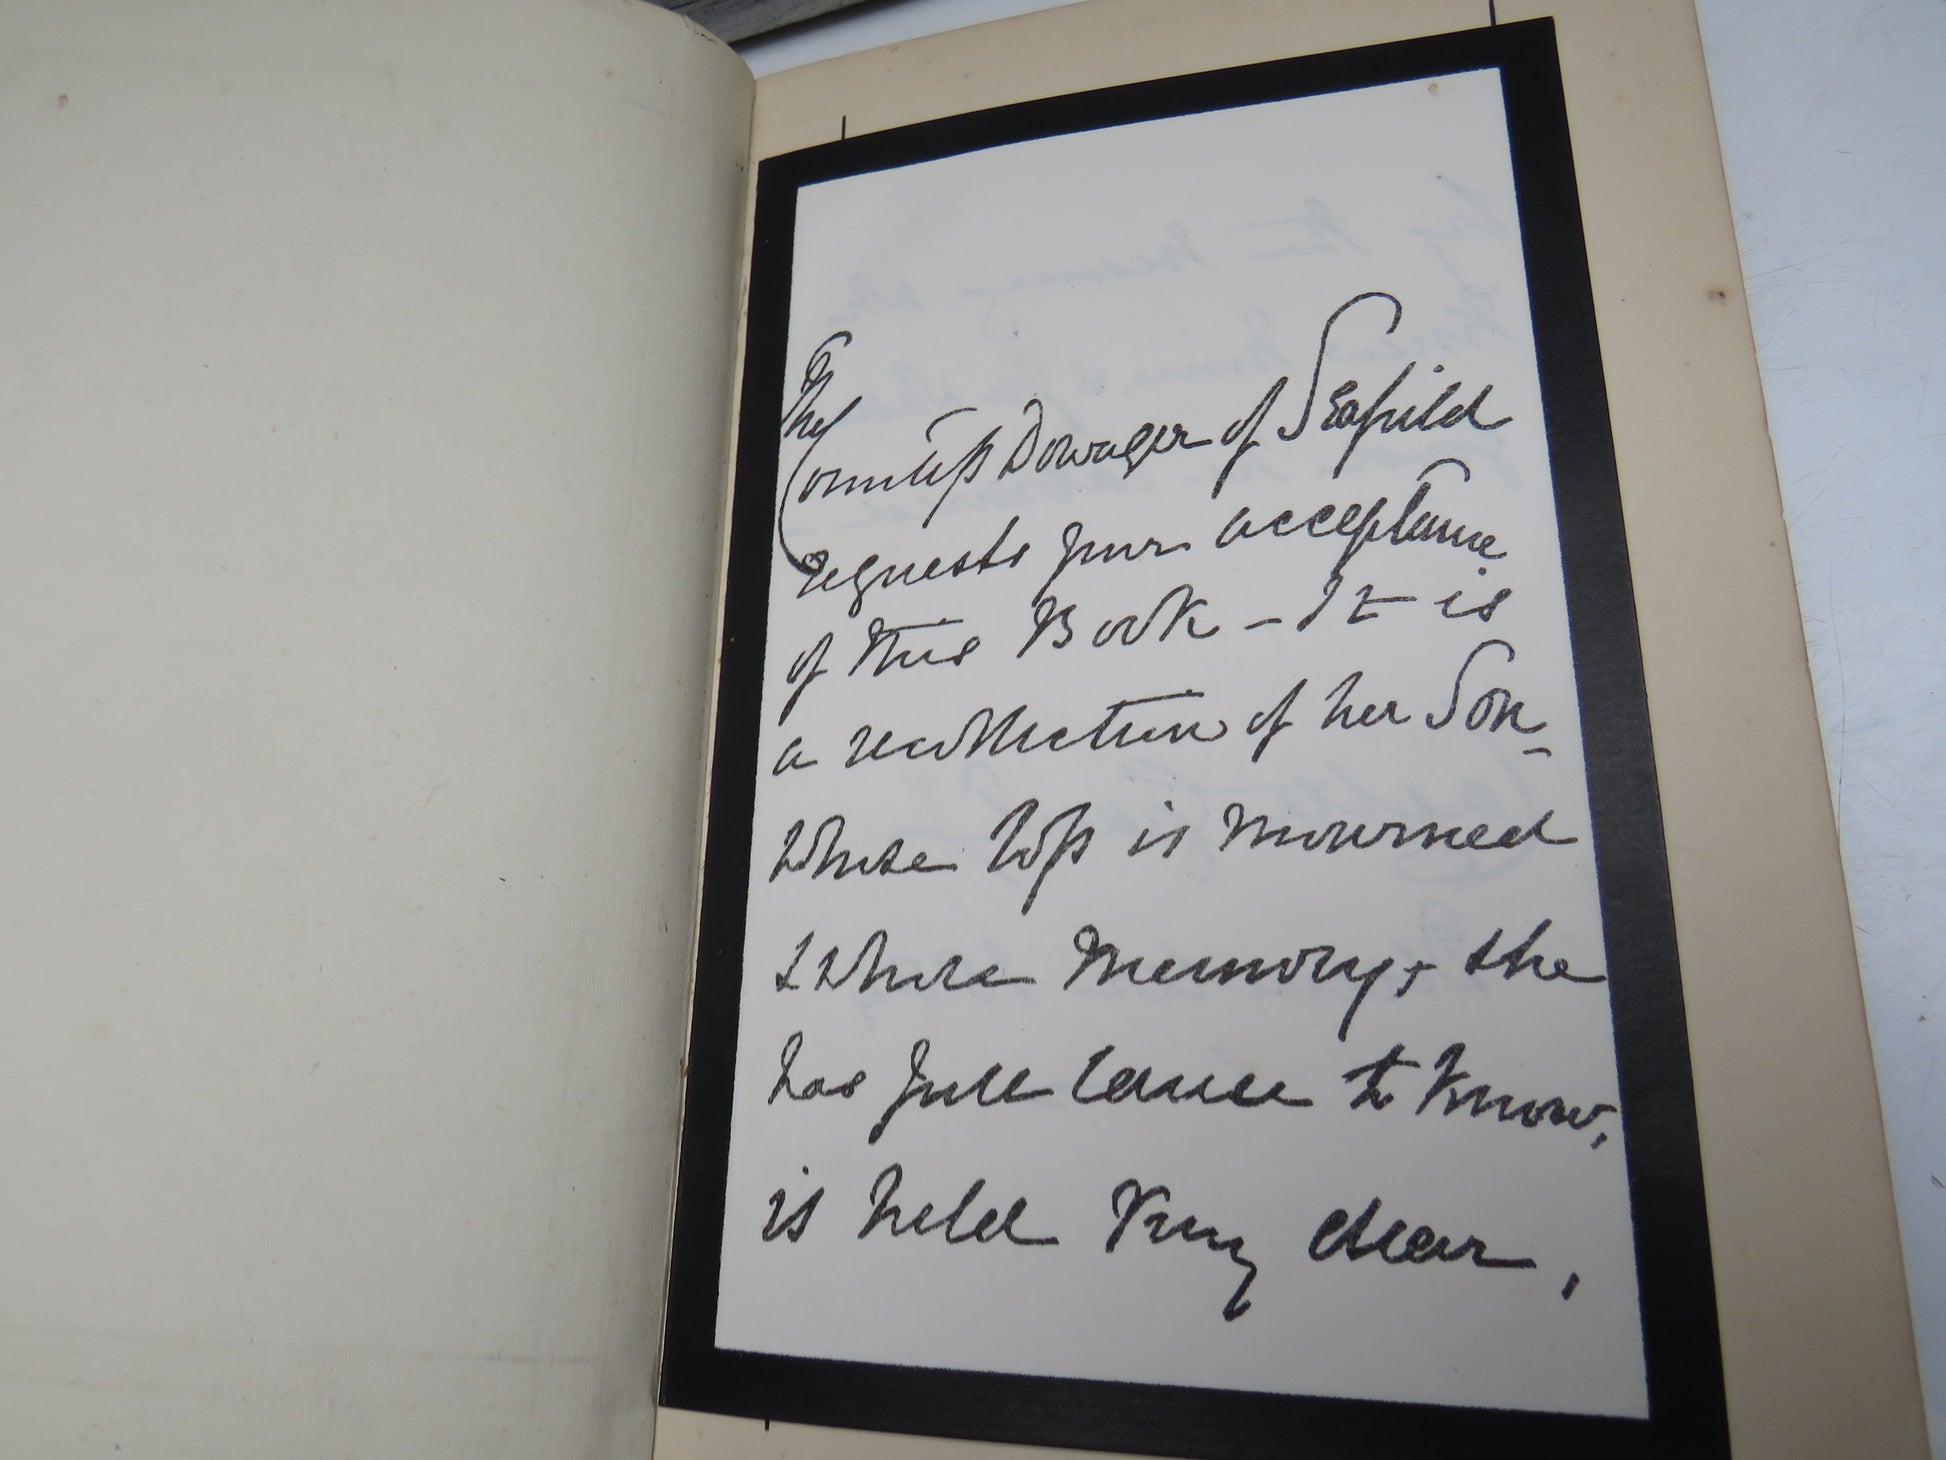 The
Countess Dowager of Seafield
requests your acceptance
of this Book - It is
a recollection of her Son -
whose loss is mourned
& whose Memory, she
has full cause to know,
is held very dear,